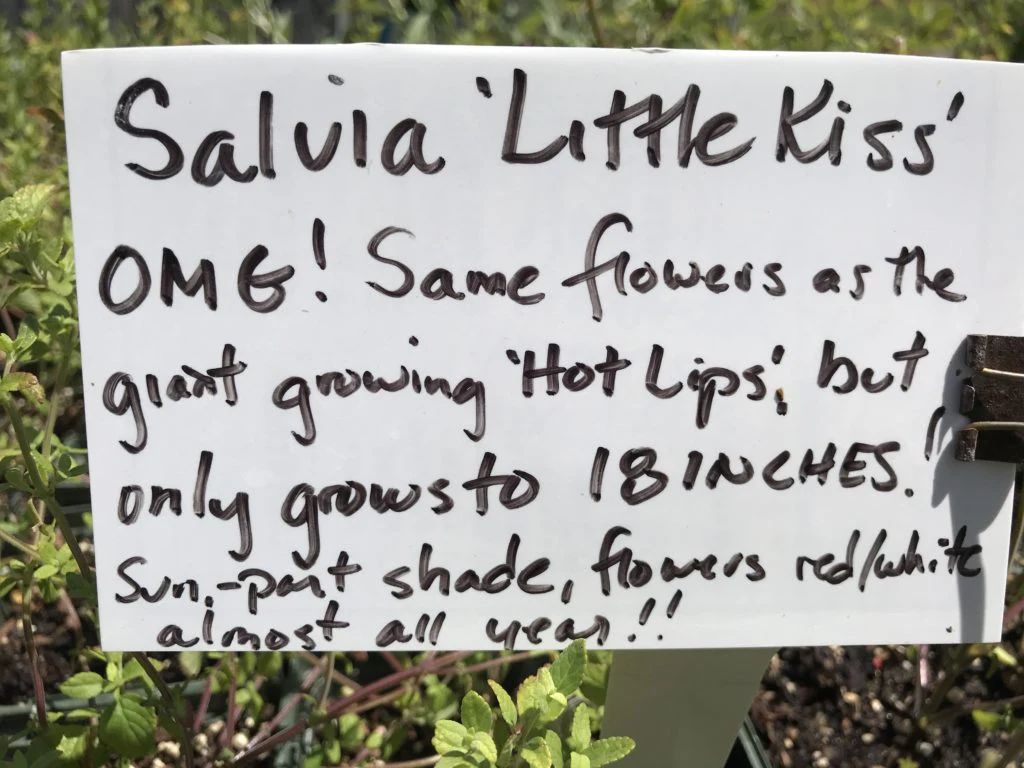 Salvia 'Little Kiss'
OMG! Same flowers as the
giant growing 'Hot Lips', but
only grows to 18 INCHES.
Sun-part shade, flowers red/white
almost all year!!